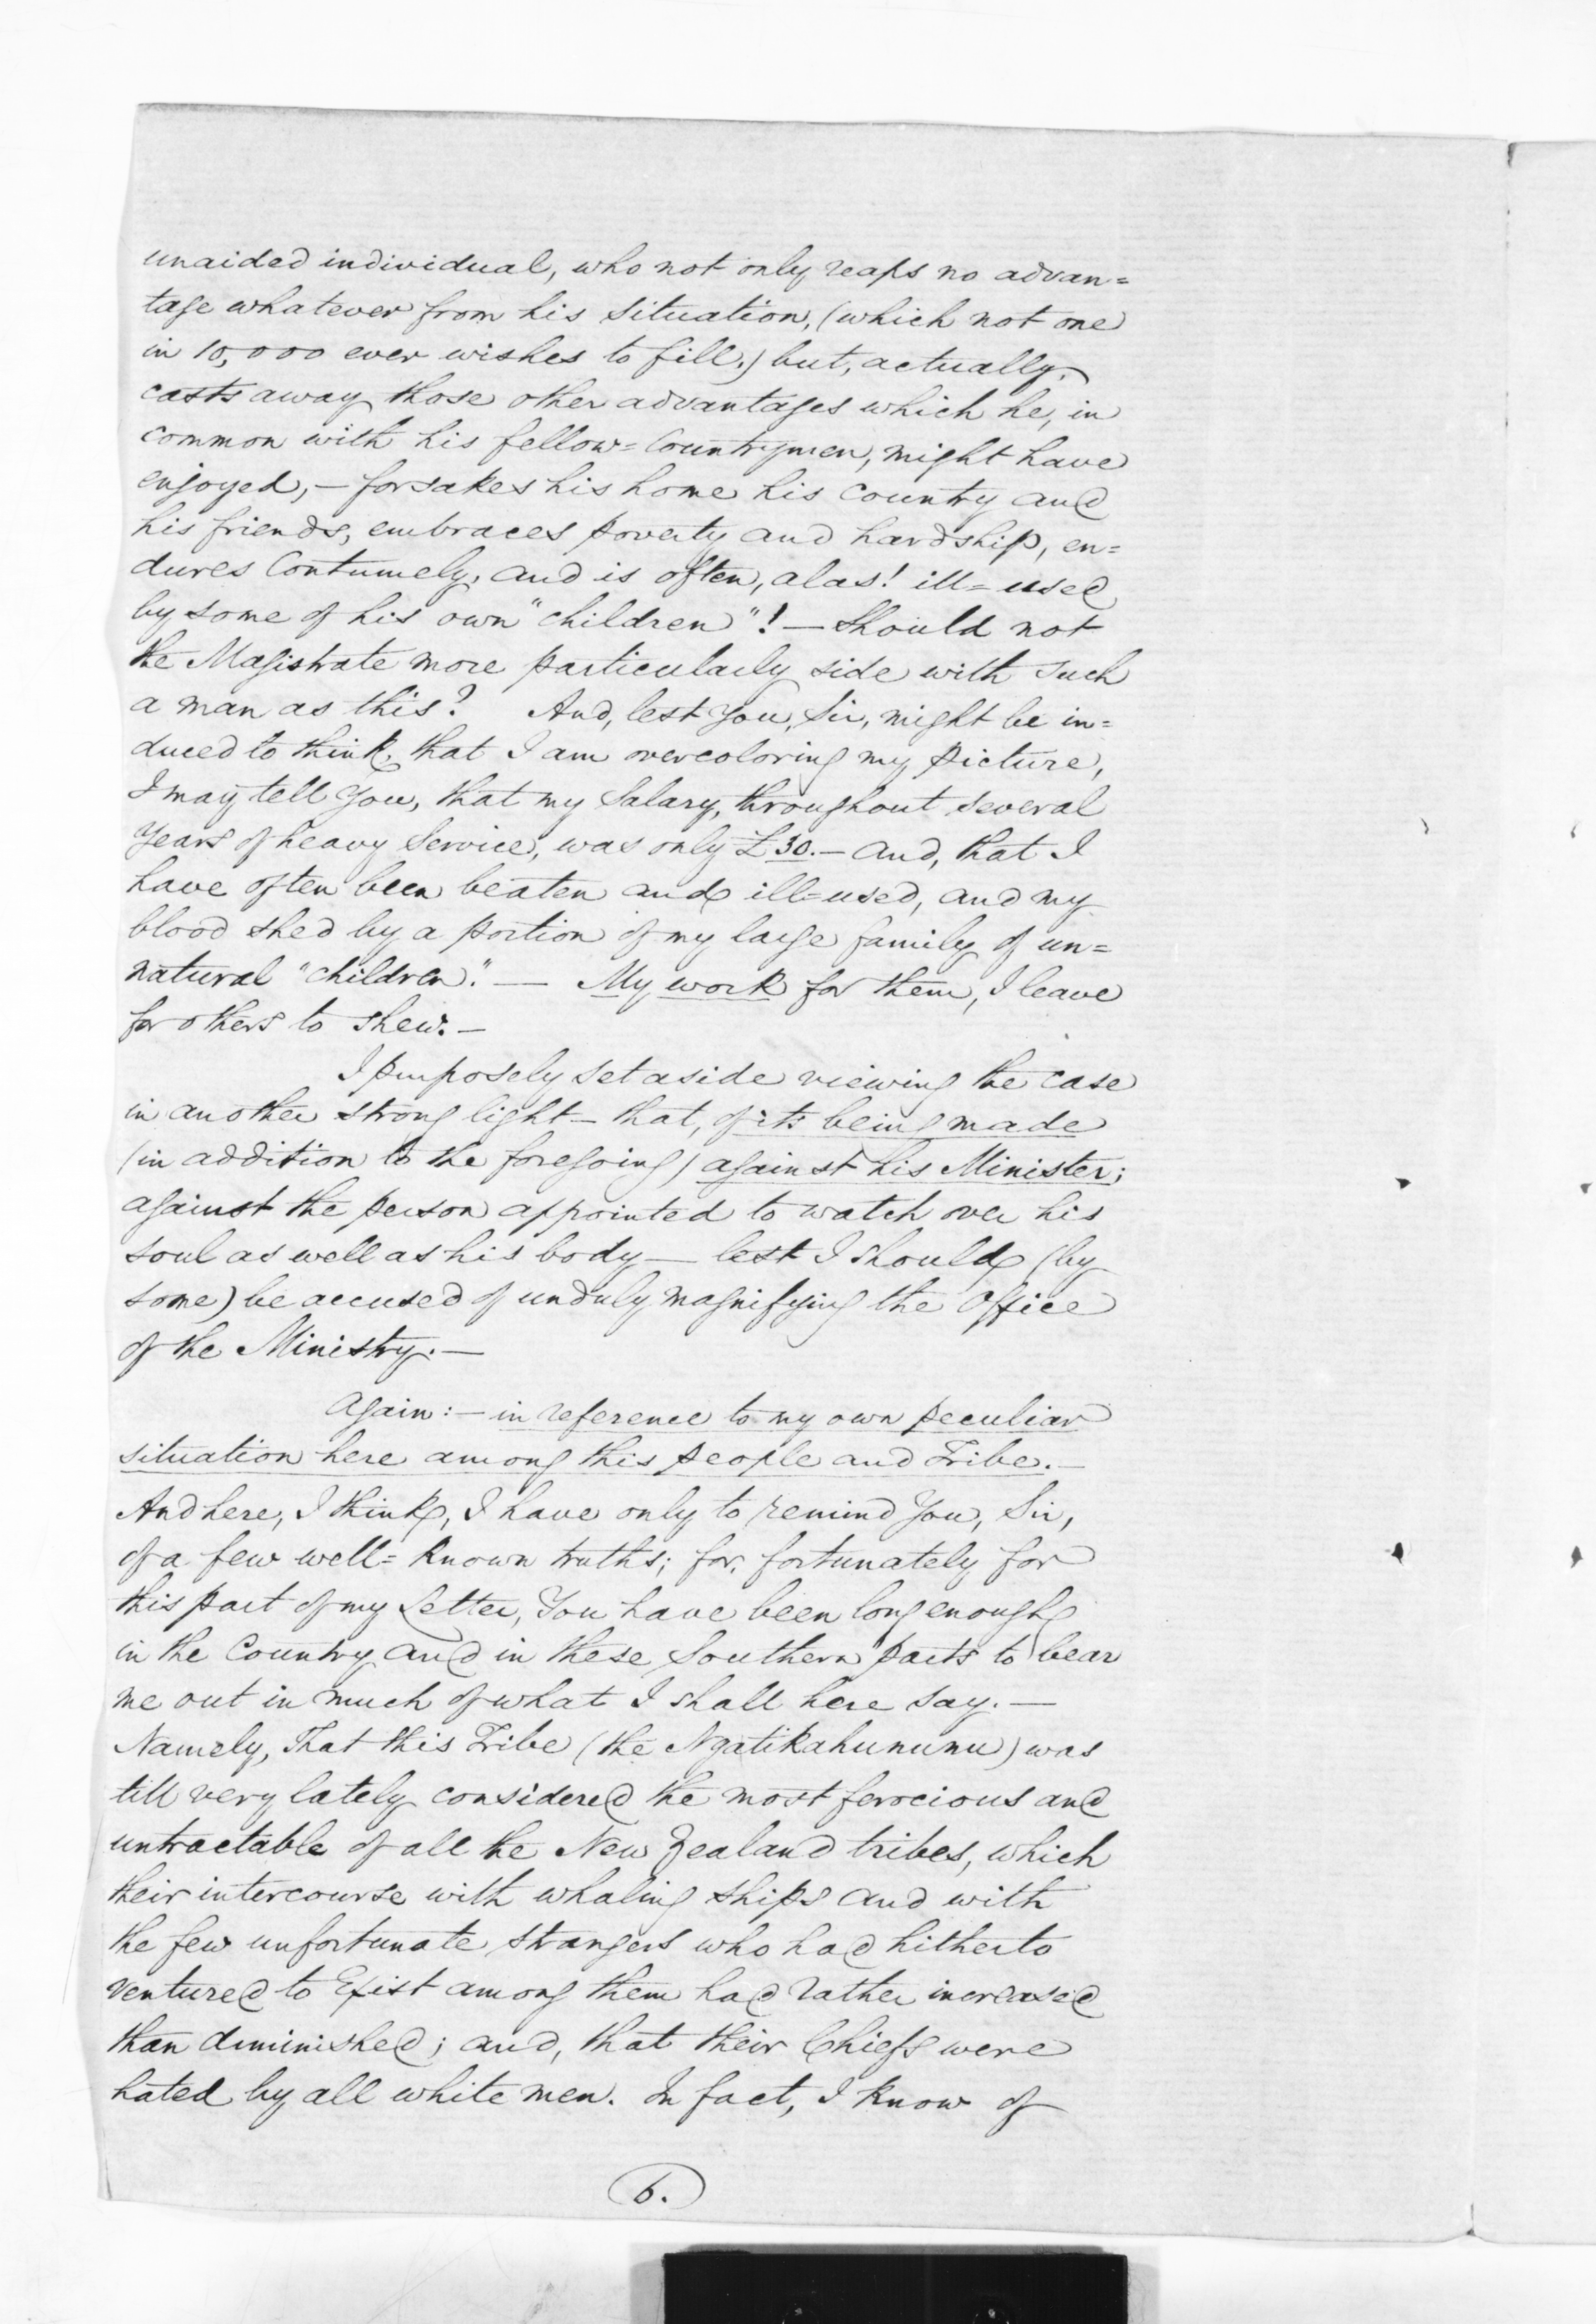 unaided individual, who not only reaps no advan=
tage whatever from his situation, (which not one
in 10,000 ever wishes to fill,) but, actually,
casts away those other advantages which he, in
common with his fellow=Countrymen, might have
enjoyed,—forsakes his home his country and
his friends, embraces poverty and hardship, en=
dures Contumely, and is often, alas! ill=used
by some of his own "children"!—Should not
the Magistrate more particularly side with such
a man as this? And, lest You, Sir, might be in=
duced to think, that I am overcoloring my picture,
I may tell You, that my Salary, throughout several
Years of heavy Service, was only £30.—and, that I
have often been beaten and ill=used, and my
blood shed by a portion of my large family of un=
natural "children."— My work for them, I leave
for others to shew.—
I purposely set aside viewing the case
in another strong light—that, of its being made
(in addition to the foregoing) against his Minister;
against the person appointed to watch over his
soul as well as his body—lest I should (by
some) be accused of unduly magnifying the Office
of the Ministry.—
Again:—in reference to my own peculiar
situation here among this people and Tribe.—
And here, I think, I have only to remind You, Sir,
of a few well=known truths; for, fortunately for
this part of my Letter, You have been long enough
in the Country and in these Southern parts to bear
me out in much of what I shall here say.—
Namely, That this Tribe (the Ngatikahununu) was
till very lately considered the most ferocious and
untractable of all the New Zealand tribes, which
their intercourse with whaling ships and with
the few unfortunate strangers who had hitherto
ventured to Exist among them had rather increased
than diminished; and, that their Chiefs were
hated by all white men. In fact, I know of
6.